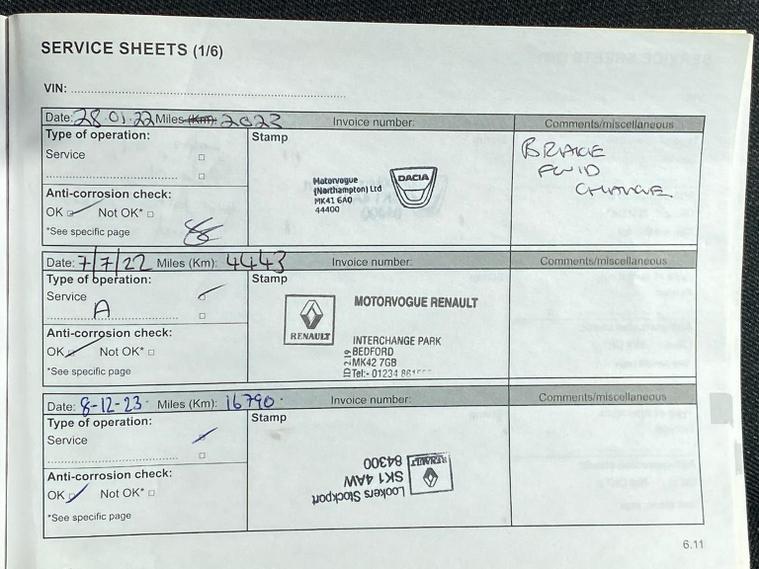 SERVICE SHEETS (1/6)
VIN:
Date: 28.01.22 Miles (Km): 2023 Invoice number: Comments/miscellaneous
Type of operation: Stamp
Service
BRAKE
FLUID
CHANGE
Motorvogue
(Northampton) Ltd
MK41 6A0
44400
DACIA
Anti-corrosion check:
OK Not OK*
*See specific page
Date: 7/7/22 Miles (Km): 4443 Invoice number: Comments/miscellaneous
Type of operation: Stamp
Service
A
RENAULT
MOTORVOGUE RENAULT
INTERCHANGE PARK
BEDFORD
MK42 7GB
Tel:- 01234
Anti-corrosion check:
OK Not OK*
*See specific page
Date: 8-12-23 Miles (Km): 16790 Invoice number: Comments/miscellaneous
Type of operation: Stamp
Service
Lookers Stockport
SK1 4AW
84300
RENAULT
Anti-corrosion check:
OK Not OK*
*See specific page
6.11